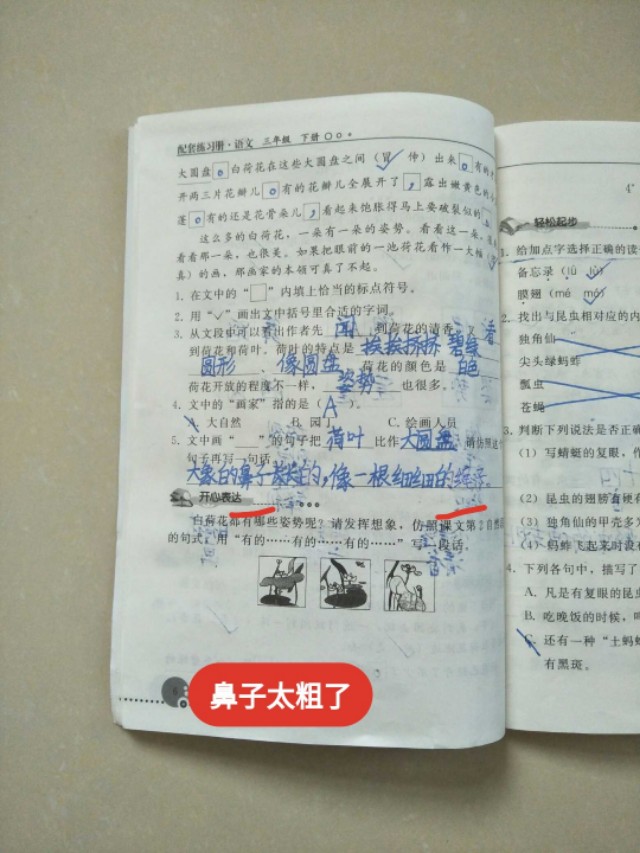 配套练习册·语文 三年级 下册
大圆盘。白荷花在这些大圆盘之间(冒 伸)出来。有的才
开两三片花瓣儿。有的花瓣儿全展开了,露出嫩黄色的小
蓬。有的还是花骨朵儿,看起来饱胀得马上要破裂似的。
这么多的白荷花,一朵有一朵的姿势。看看这一朵,很
看看那一朵,也很美。如果把眼前的一池荷花看作一大幅
真)的画,那画家的本领可真了不起。
1. 在文中的“□”内填上恰当的标点符号。
2. 用“✓”画出文中括号里合适的字词。
3. 从文段中可以看出作者先 闻 到荷花的清香,又 看
到荷花和荷叶。荷叶的特点是 挨挨挤挤 碧绿
圆形、像圆盘 荷花的颜色是 白色
荷花开放的程度不一样, 姿势 也很多。
4. 文中的“画家”指的是( A )。
A. 大自然 B. 园丁 C. 绘画人员
5. 文中画“____”的句子把 荷叶 比作 大圆盘 请仿照这个
句子再写一句话。
大象的鼻子长长的,像一根细细的绳子
开心表达
白荷花都有哪些姿势呢?请发挥想象,仿照课文第2自然段
的句式,用“有的……有的……有的……”写一段话。
6
鼻子太粗了
轻松起步
1. 给加点字选择正确的读
备忘录(lù lù)
膜翅(mé mó)
2. 找出与昆虫相对应的内
独角仙
尖头绿蚂蚱
瓢虫
苍蝇
3. 判断下列说法是否正确
(1)写蜻蜓的复眼,作
(2)昆虫的翅膀有硬有
(3)独角仙的甲壳多为
(4)蚂蚱飞起来时没有
4. 下列各句中,描写了
A. 凡是有复眼的昆虫
B. 吃晚饭的时候,呜
C. 还有一种“土蚂蚱
有黑斑。